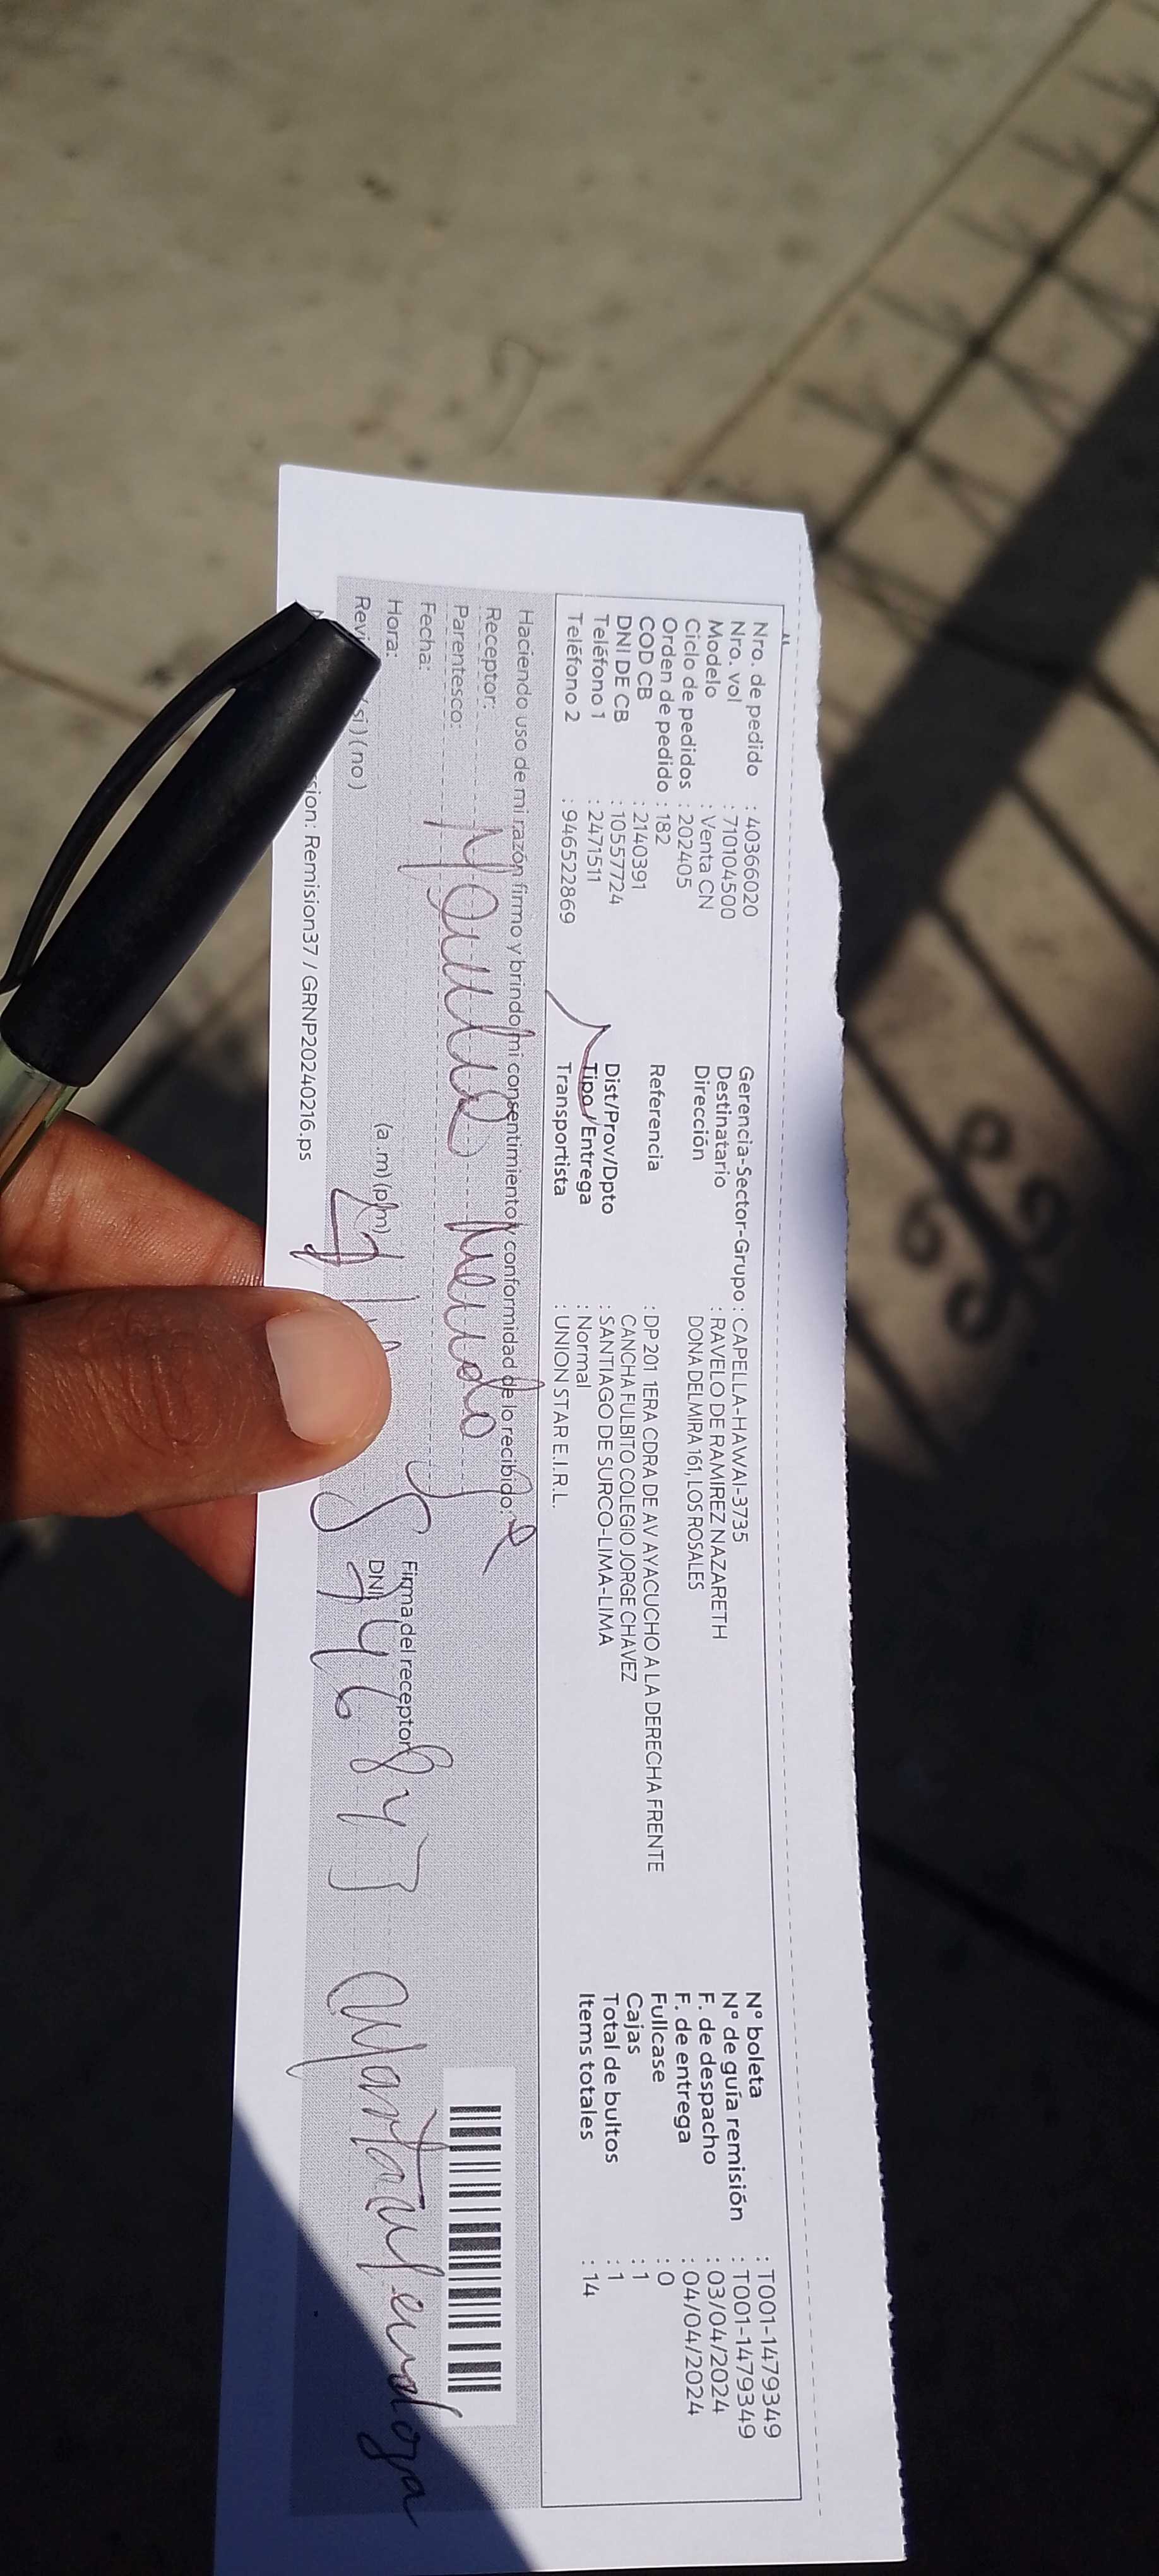 Nro. de pedido : 40366020
Nro. vol : 710104500
Modelo : Venta CN
Ciclo de pedidos : 202405
Orden de pedido : 182
COD CB : 2140391
DNI DE CB : 10557724
Teléfono 1 : 2471511
Teléfono 2 : 946522869
Gerencia-Sector-Grupo : CAPELLA-HAWAI-3735
Destinatario : RAVELO DE RAMIREZ NAZARETH
Dirección DONA DELMIRA 161, LOS ROSALES
Referencia : DP 201 1ERA CDRA DE AV AYACUCHO A LA DERECHA FRENTE
CANCHA FULBITO COLEGIO JORGE CHAVEZ
Dist/Prov/Dpto : SANTIAGO DE SURCO-LIMA-LIMA
Tipo / Entrega : Normal
Transportista : UNION STAR E.I.R.L.
N° boleta : T001-1479349
N° de guía remisión : T001-1479349
F. de despacho : 03/04/2024
F. de entrega : 04/04/2024
Fullcase : 0
Cajas : 1
Total de bultos : 1
Items totales : 14
Haciendo uso de mi razón firmo y brindo mi consentimiento y conformidad de lo recibido.
Receptor:
Parentesco:
Fecha:
Hora: (a.m) (p.m)
(si) (no)
Firma del receptor
DNI
Remision37 / GRNP20240216.ps